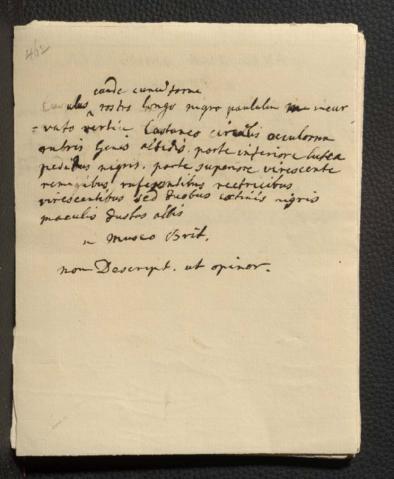 462
caude cuneiforme
Cuculus rostro longo nigro paululum incur
= vato vertice Castaneo circulis oculorum
nutris Genis albidis. parte inferiore lutea
pedibus nigris. parte superiore virescente
remigibus rufescentibus rectricibus
virescentibus sed duobus extimis nigris
maculis duobus albis
in Museo Brit.
non Descript. ut opinor.